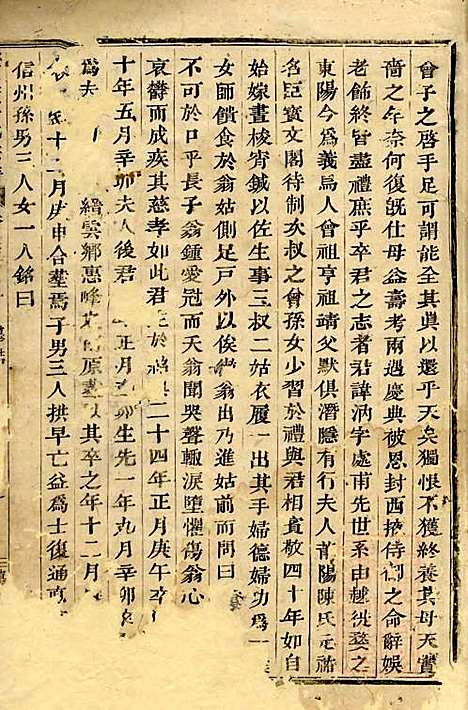 曾子之啓手足可謂能全其眞以還乎天矣獨恨不獲終養其母天實
嗇之年奈何復旣仕母益壽考兩遇慶典被恩封西掖侍御之命辭娛
老飾終皆盡禮庶乎卒君之志者君諱汭字處甫先世系由越徙婺之
東陽今爲義烏人曾祖亨祖靖父默俱潛隱有行夫人莆陽陳氏元祐
名臣寳文閣待制次叔之曾孫女少習於禮與君相敬四十年如自
始嫁晝梭宵鍼以佐生事三叔二姑衣履一出其手婦德婦功爲一
女師饋食於翁姑側足戶外以俟翁出乃進姑前而問曰
不可於口乎長子翁鍾愛冠而夭翁聞哭聲輙淚墮懼傷翁心
哀鬱而成疾其慈孝如此君 二十四年正月庚午卒
十年五月辛卯夫人後君 正月 卯生先一年九月辛卯
爲夫 縉雲鄉惠峰 原 以其卒之年十二月
十二月庚申合塟焉子男三人拱早亡益爲士復通直
信州孫男三人女一人銘曰